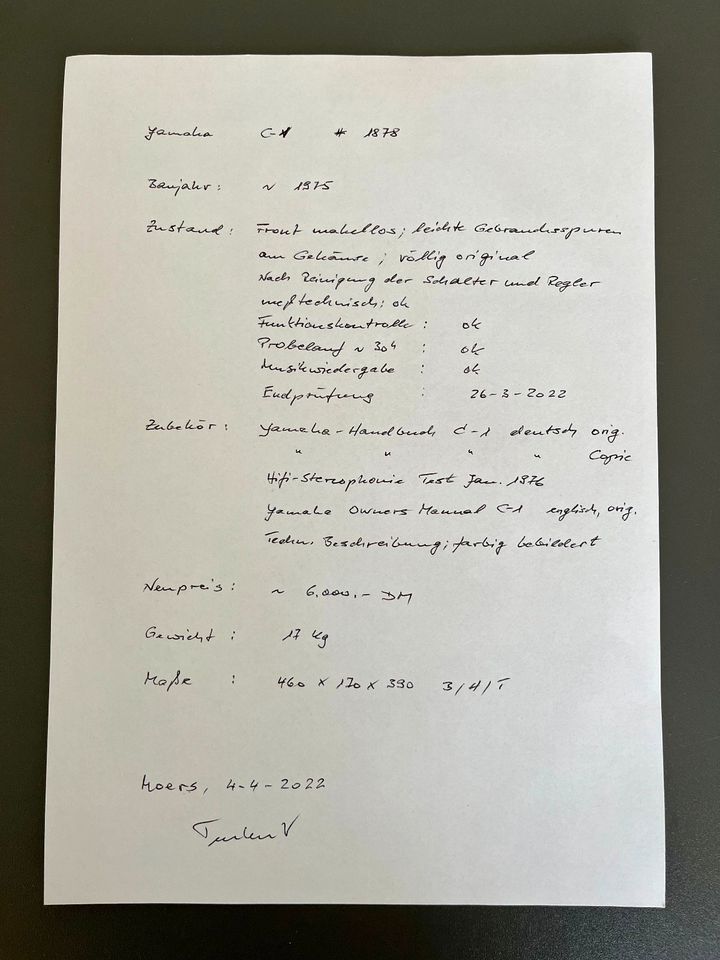 Yamaha C-1 # 1878
Baujahr: ~ 1975
Zustand: Front makellos; leichte Gebrauchsspuren
am Gehäuse; völlig original
Nach Reinigung der Schalter und Regler
meßtechnisch: ok
Funktionskontrolle : ok
Probelauf ~ 30h : ok
Musikwiedergabe : ok
Endprüfung : 26-3-2022
Zubehör: Yamaha-Handbuch C-1 deutsch orig.
" " " " Copie
Hifi-Stereophonie Test Jan. 1976
Yamaha Owners Manual C-1 englisch, orig.
Techn. Beschreibung; farbig bebildert
Neupreis: ~ 6.000.- DM
Gewicht: 17 kg
Maße : 460 x 170 x 390 B/H/T
Moers, 4-4-2022